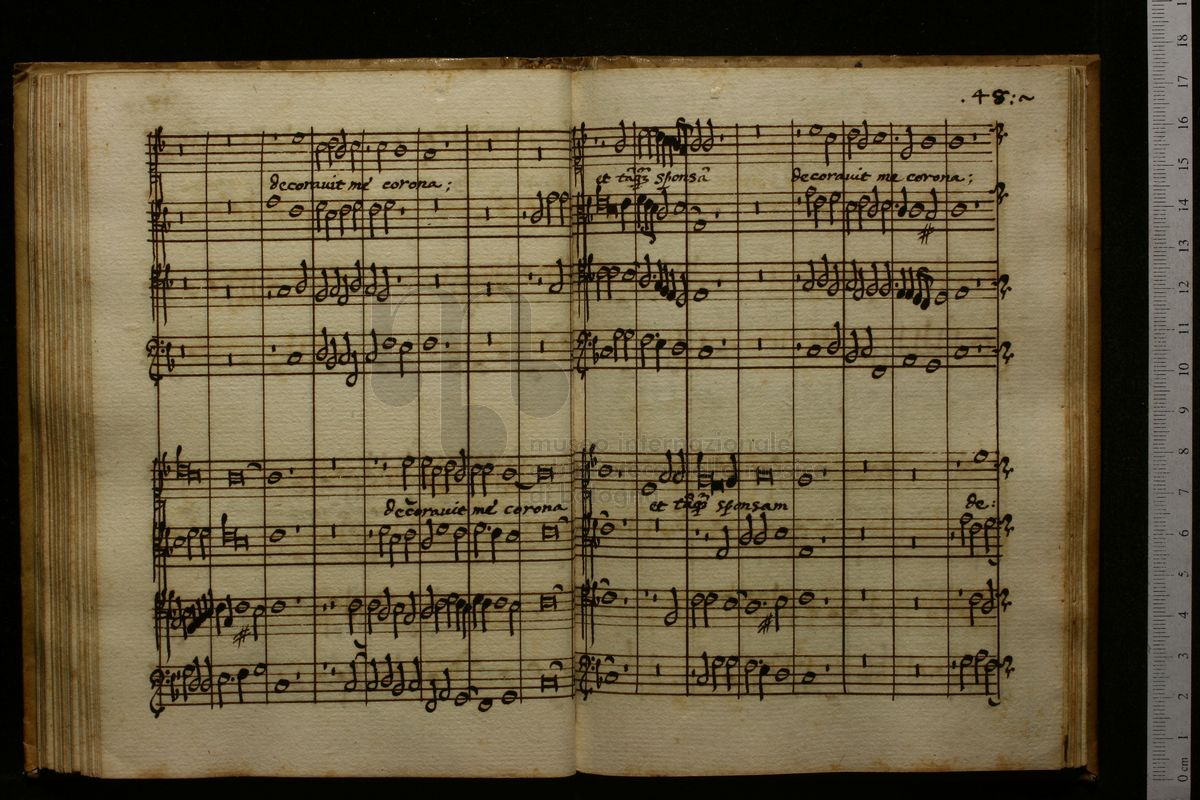 .48:~
decorauit me corona;
et tāq̃ȝ sponsā
decorauit me corona;
decorauit me corona
et tāq̃ȝ sponsam
de:
museo internazionale
di bologna
0 cm 1 2 3 4 5 6 7 8 9 10 11 12 13 14 15 16 17 18